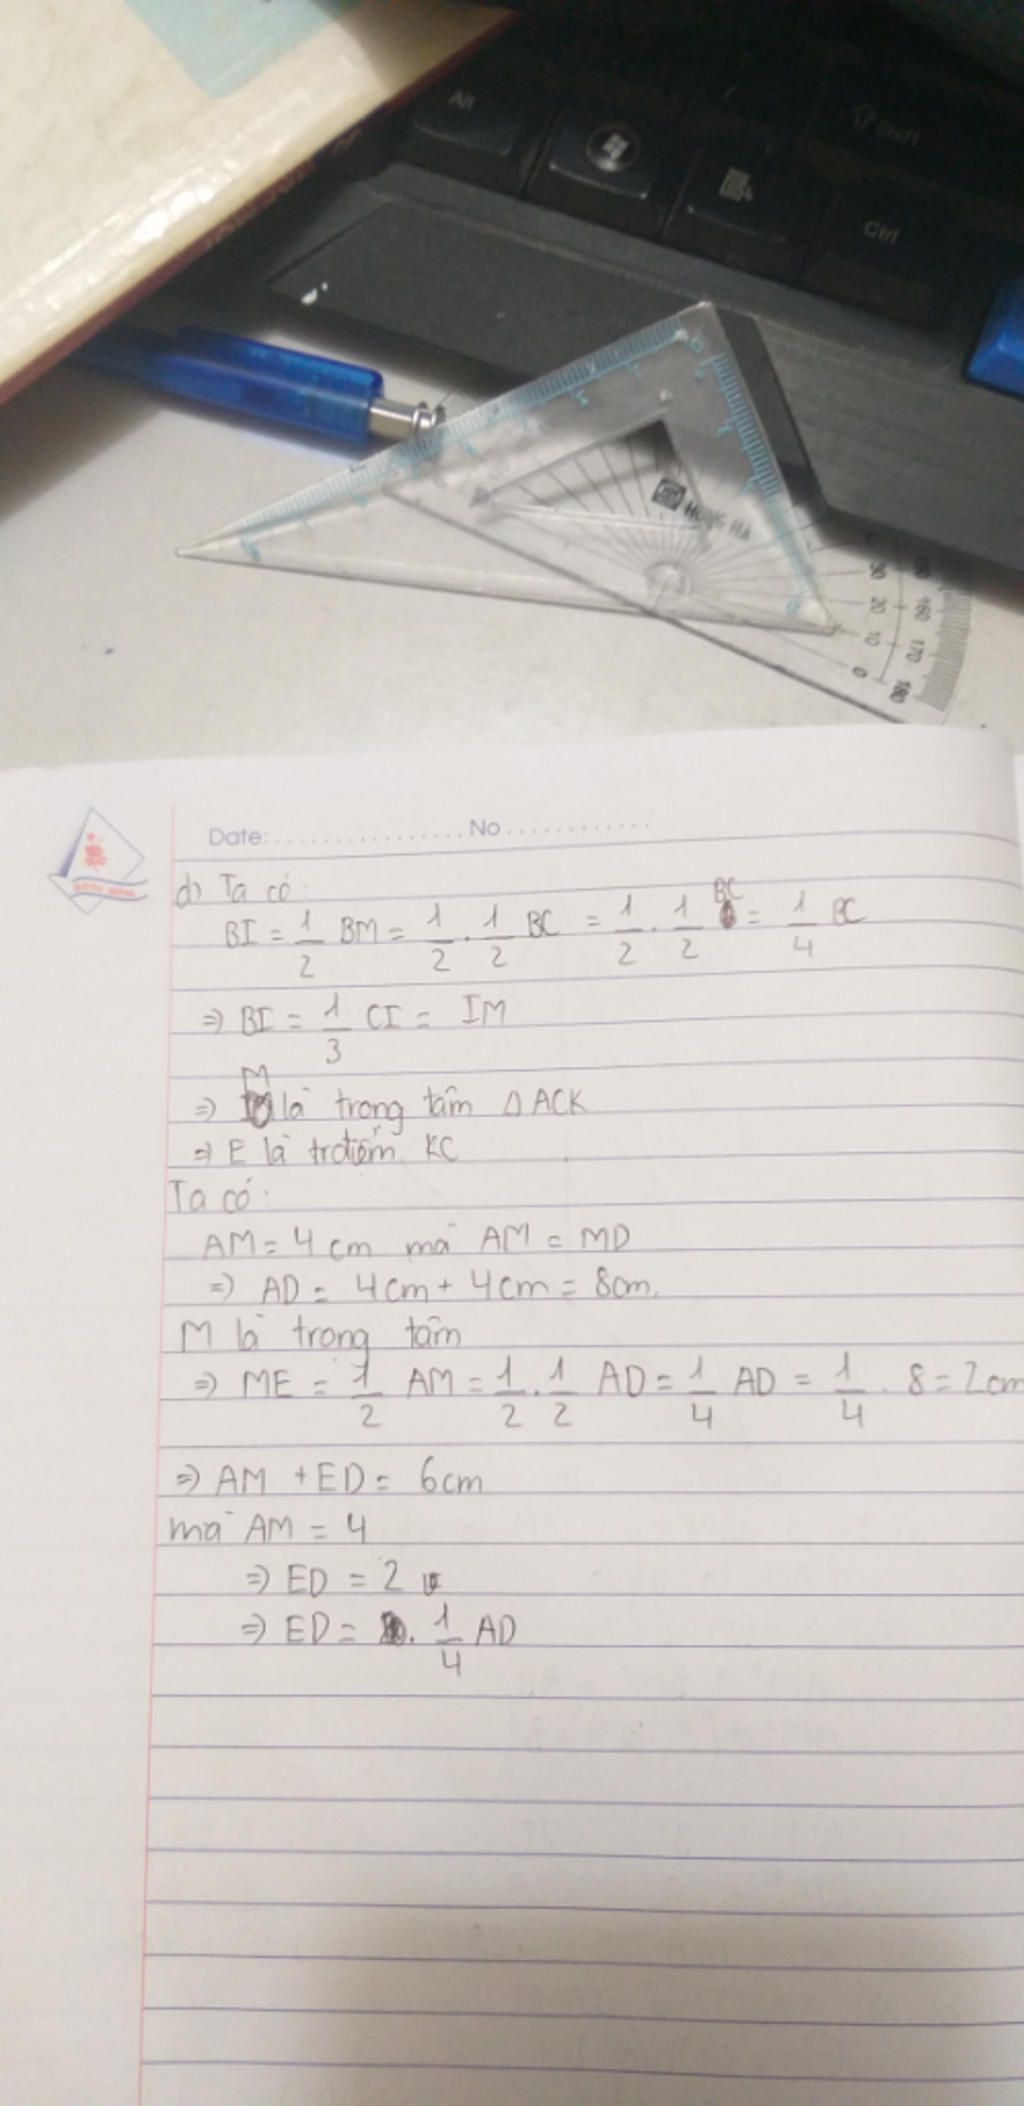 Alt
Shift
Ctrl
HONG HA
30 20 10 0
160 170 180
Date:................No.............
d) Ta có:
BI = 1/2 BM = 1/2 . 1/2 BC = 1/2 . 1/2 BC = 1/4 BC
=> BI = 1/3 CI = IM
=> M là trọng tâm Δ ACK
=> E là trđiểm KC
Ta có:
AM = 4 cm mà AM = MD
=> AD = 4cm + 4cm = 8cm.
M là trọng tâm
=> ME = 1/2 AM = 1/2 . 1/2 AD = 1/4 AD = 1/4 . 8 = 2cm
=> AM + ED = 6cm
mà AM = 4
=> ED = 2
=> ED = . 1/4 AD